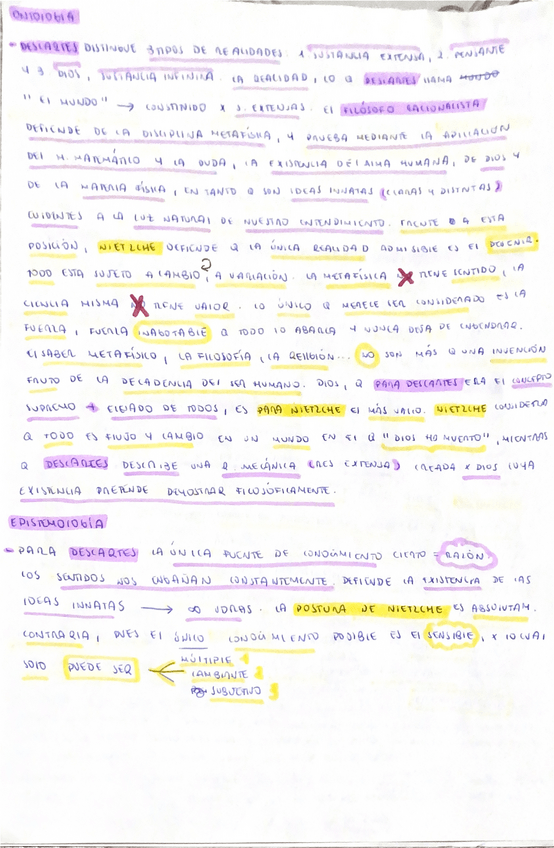 ONTOLOGÍA
- DESCARTES DISTINGUE 3 TIPOS DE REALIDADES. 1 SUSTANCIA EXTENSA, 2. PENSANTE
Y 3 DIOS, SUSTANCIA INFINITA. LA REALIDAD, LO Q DESCARTES LLAMA MUNDO
"EL MUNDO" → CONSTITUIDO X S. EXTENSAS. EL FILÓSOFO RACIONALISTA
DEFIENDE DE LA DISCIPLINA METAFÍSICA, Y PRUEBA MEDIANTE LA APLICACIÓN
DEL M. MATEMÁTICO Y LA DUDA, LA EXISTENCIA DEL ALMA HUMANA, DE DIOS Y
DE LA MATERIA FÍSICA, EN TANTO Q SON IDEAS INNATAS (CLARAS Y DISTINTAS)
EVIDENTES A LA LUZ NATURAL DE NUESTRO ENTENDIMIENTO. FRENTE A ESTA
POSICIÓN, NIETZCHE DEFIENDE Q LA ÚNICA REALIDAD ADMISIBLE ES EL DEVENIR.
TODO ESTÁ SUJETO A CAMBIO, A VARIACIÓN. LA METAFÍSICA X TIENE SENTIDO, LA
CIENCIA MISMA X TIENE VALOR. LO ÚNICO Q MERECE SER CONSIDERADO ES LA
FUERZA, FUERZA INAGOTABLE Q TODO LO ABARCA Y NUNCA DEJA DE ENGENDRAR.
EL SABER METAFÍSICO, LA FILOSOFÍA, LA RELIGIÓN... NO SON MÁS Q UNA INVENCIÓN
FRUTO DE LA DECADENCIA DEL SER HUMANO. DIOS, Q PARA DESCARTES ERA EL CONCEPTO
SUPREMO + ELEVADO DE TODOS, ES PARA NIETZCHE EL MÁS VACÍO. NIETZCHE CONSIDERA
Q TODO ES FLUJO Y CAMBIO EN UN MUNDO EN EL Q "DIOS HA MUERTO", MIENTRAS
Q DESCARTES DESCRIBE UNA R. MECÁNICA (RES EXTENSA) CREADA X DIOS CUYA
EXISTENCIA PRETENDE DEMOSTRAR FILOSÓFICAMENTE.
EPISTEMOLOGÍA
- PARA DESCARTES LA ÚNICA FUENTE DE CONOCIMIENTO CIERTO = RAZÓN.
LOS SENTIDOS NOS ENGAÑAN CONSTANTEMENTE. DEFIENDE LA EXISTENCIA DE LAS
IDEAS INNATAS → VDRAS. LA POSTURA DE NIETZCHE ES ABSOLUTAM.
CONTRARIA, PUES EL ÚNICO CONOCIMIENTO POSIBLE ES EL SENSIBLE, X LO CUAL
SOLO PUEDE SER
MÚLTIPLE 1
CAMBIANTE 2
SUBJETIVO 3